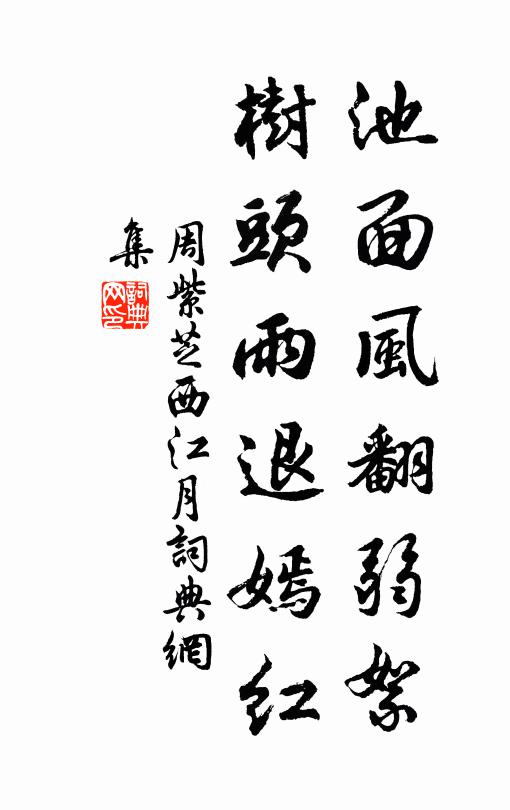 池面風翻弱絮
樹頭雨退嫣紅
周紫芝西江月詞典網
集
詞典
网印